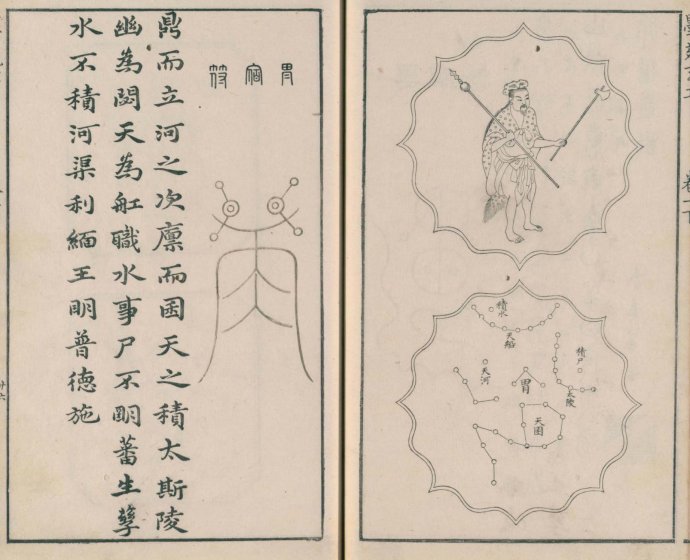 積尸
太陵
積水
天船
胃
天囷
天河
胃宿符
鼎而立河之次廩而囷天之積太斯陵
幽為閟天為舡職水事尸不朙蕃生孽
水不積河渠利緬王眀普德施